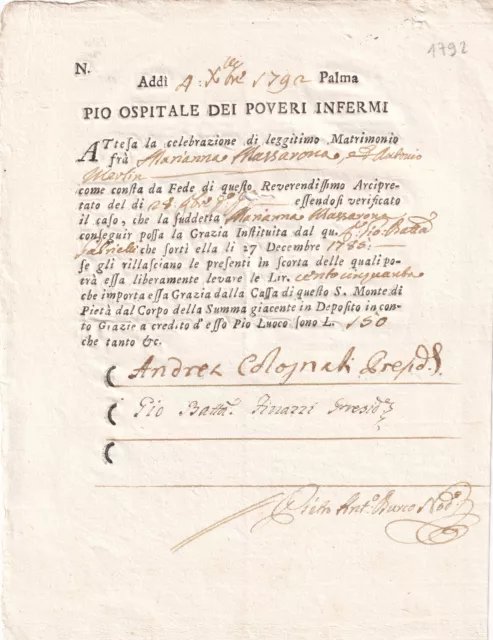 1792
N.
Addì 4: Xbre 1792 Palma
PIO OSPITALE DEI POVERI INFERMI
ATtesa la celebrazione di leggitimo Matrimonio
frà Marianna Massarona, e Antonio
Merlin
come consta da Fede di questo Reverendissimo Arcipre-
tato del dì 28 9bre essendosi verificato
il caso, che la suddetta Marianna Massarona
conseguir possa la Grazia Instituita dal qu. Gio: Batta
Gabrielli che sortì ella li 27 Decembre 1785:
se gli rillasciano le presenti in scorta delle quali po-
terà essa liberamente levare le Lir. centocinquanta
che importa essa Grazia dalla Cassa di questo S. Monte di
Pietà dal Corpo della Summa giacente in Deposito in con-
to Grazie a credito d'esso Pio Luoco sono L. 150
che tanto &c.
( Andrea Colognati Presid.
( Gio Batta. Finazzi Presid
(
Pietro Ant.o Burco Nod.o